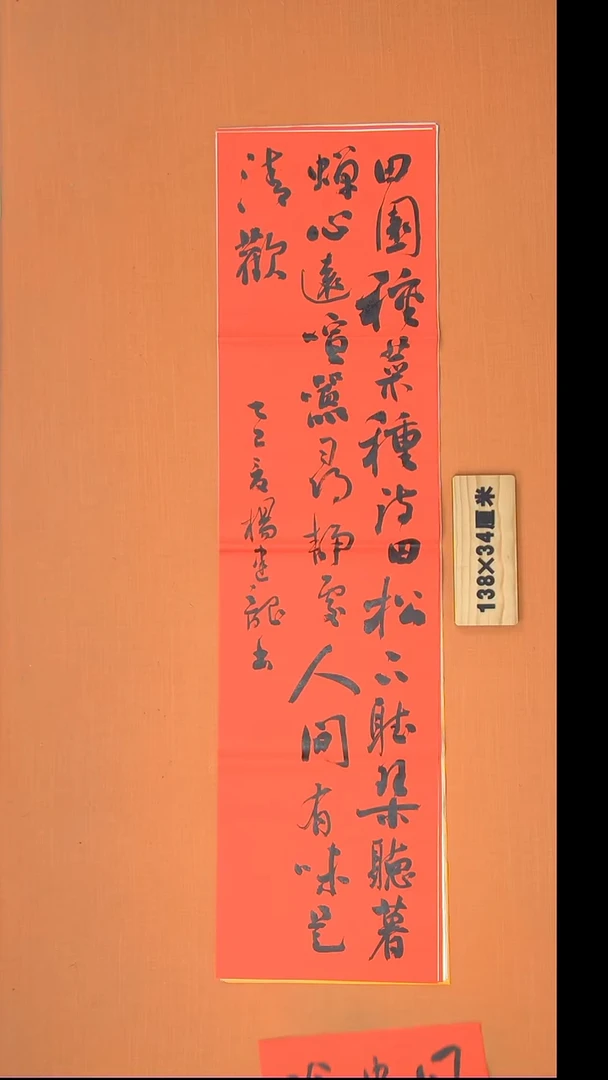 田園種菜種詩田松下聽琹聽暮
蟬心遠喧囂尋靜處人間有味是
清歡
乙巳夏楊建龍書
138×34厘米